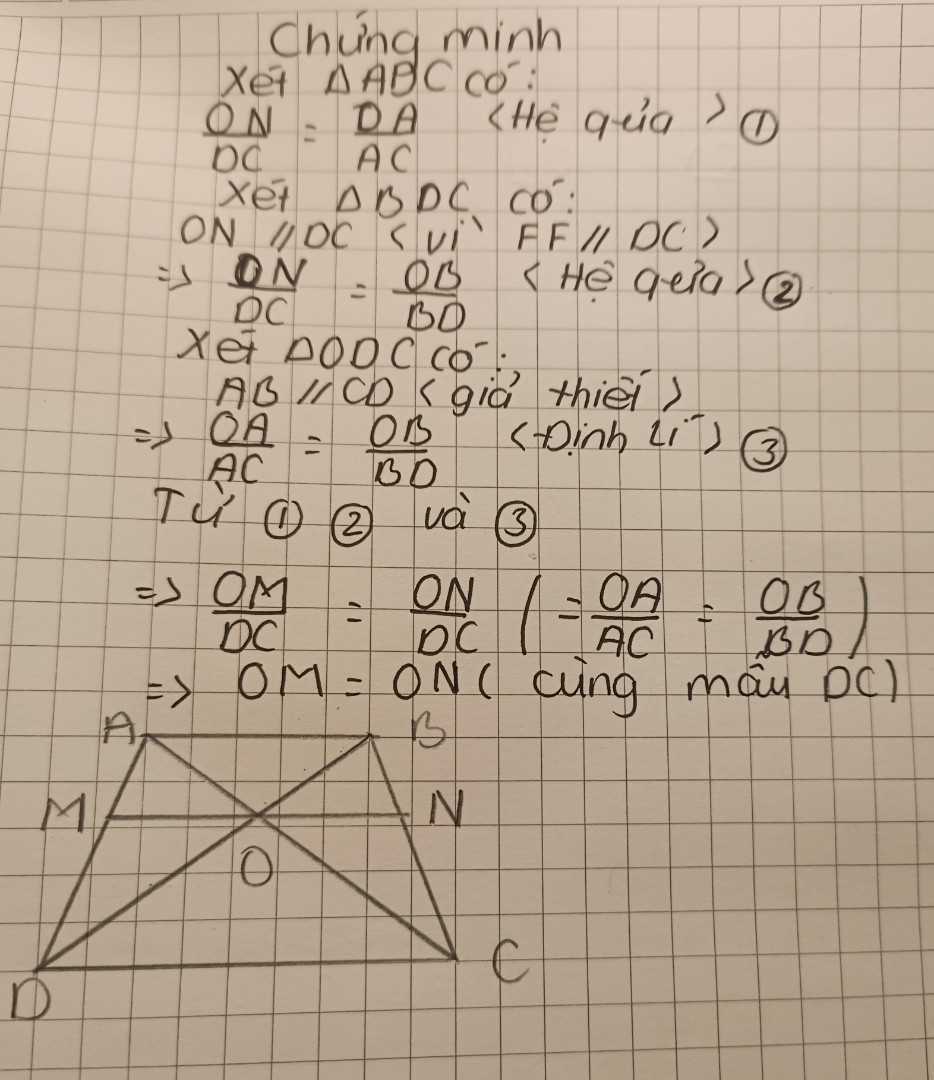 Chứng minh
Xét ΔABC có:
ON/DC = DA/AC <Hệ qủa> ①
Xét ΔBDC có:
ON // DC <vì FF // DC>
=> ON/DC = OB/BD <Hệ qủa> ②
Xét ΔODC có:
AB // CD <giả thiết>
=> OA/AC = OB/BD <Định lí> ③
Từ ① ② và ③
=> OM/DC = ON/DC (= OA/AC = OB/BD)
=> OM = ON ( cùng mẫu DC)
A B
M N
O
C
D